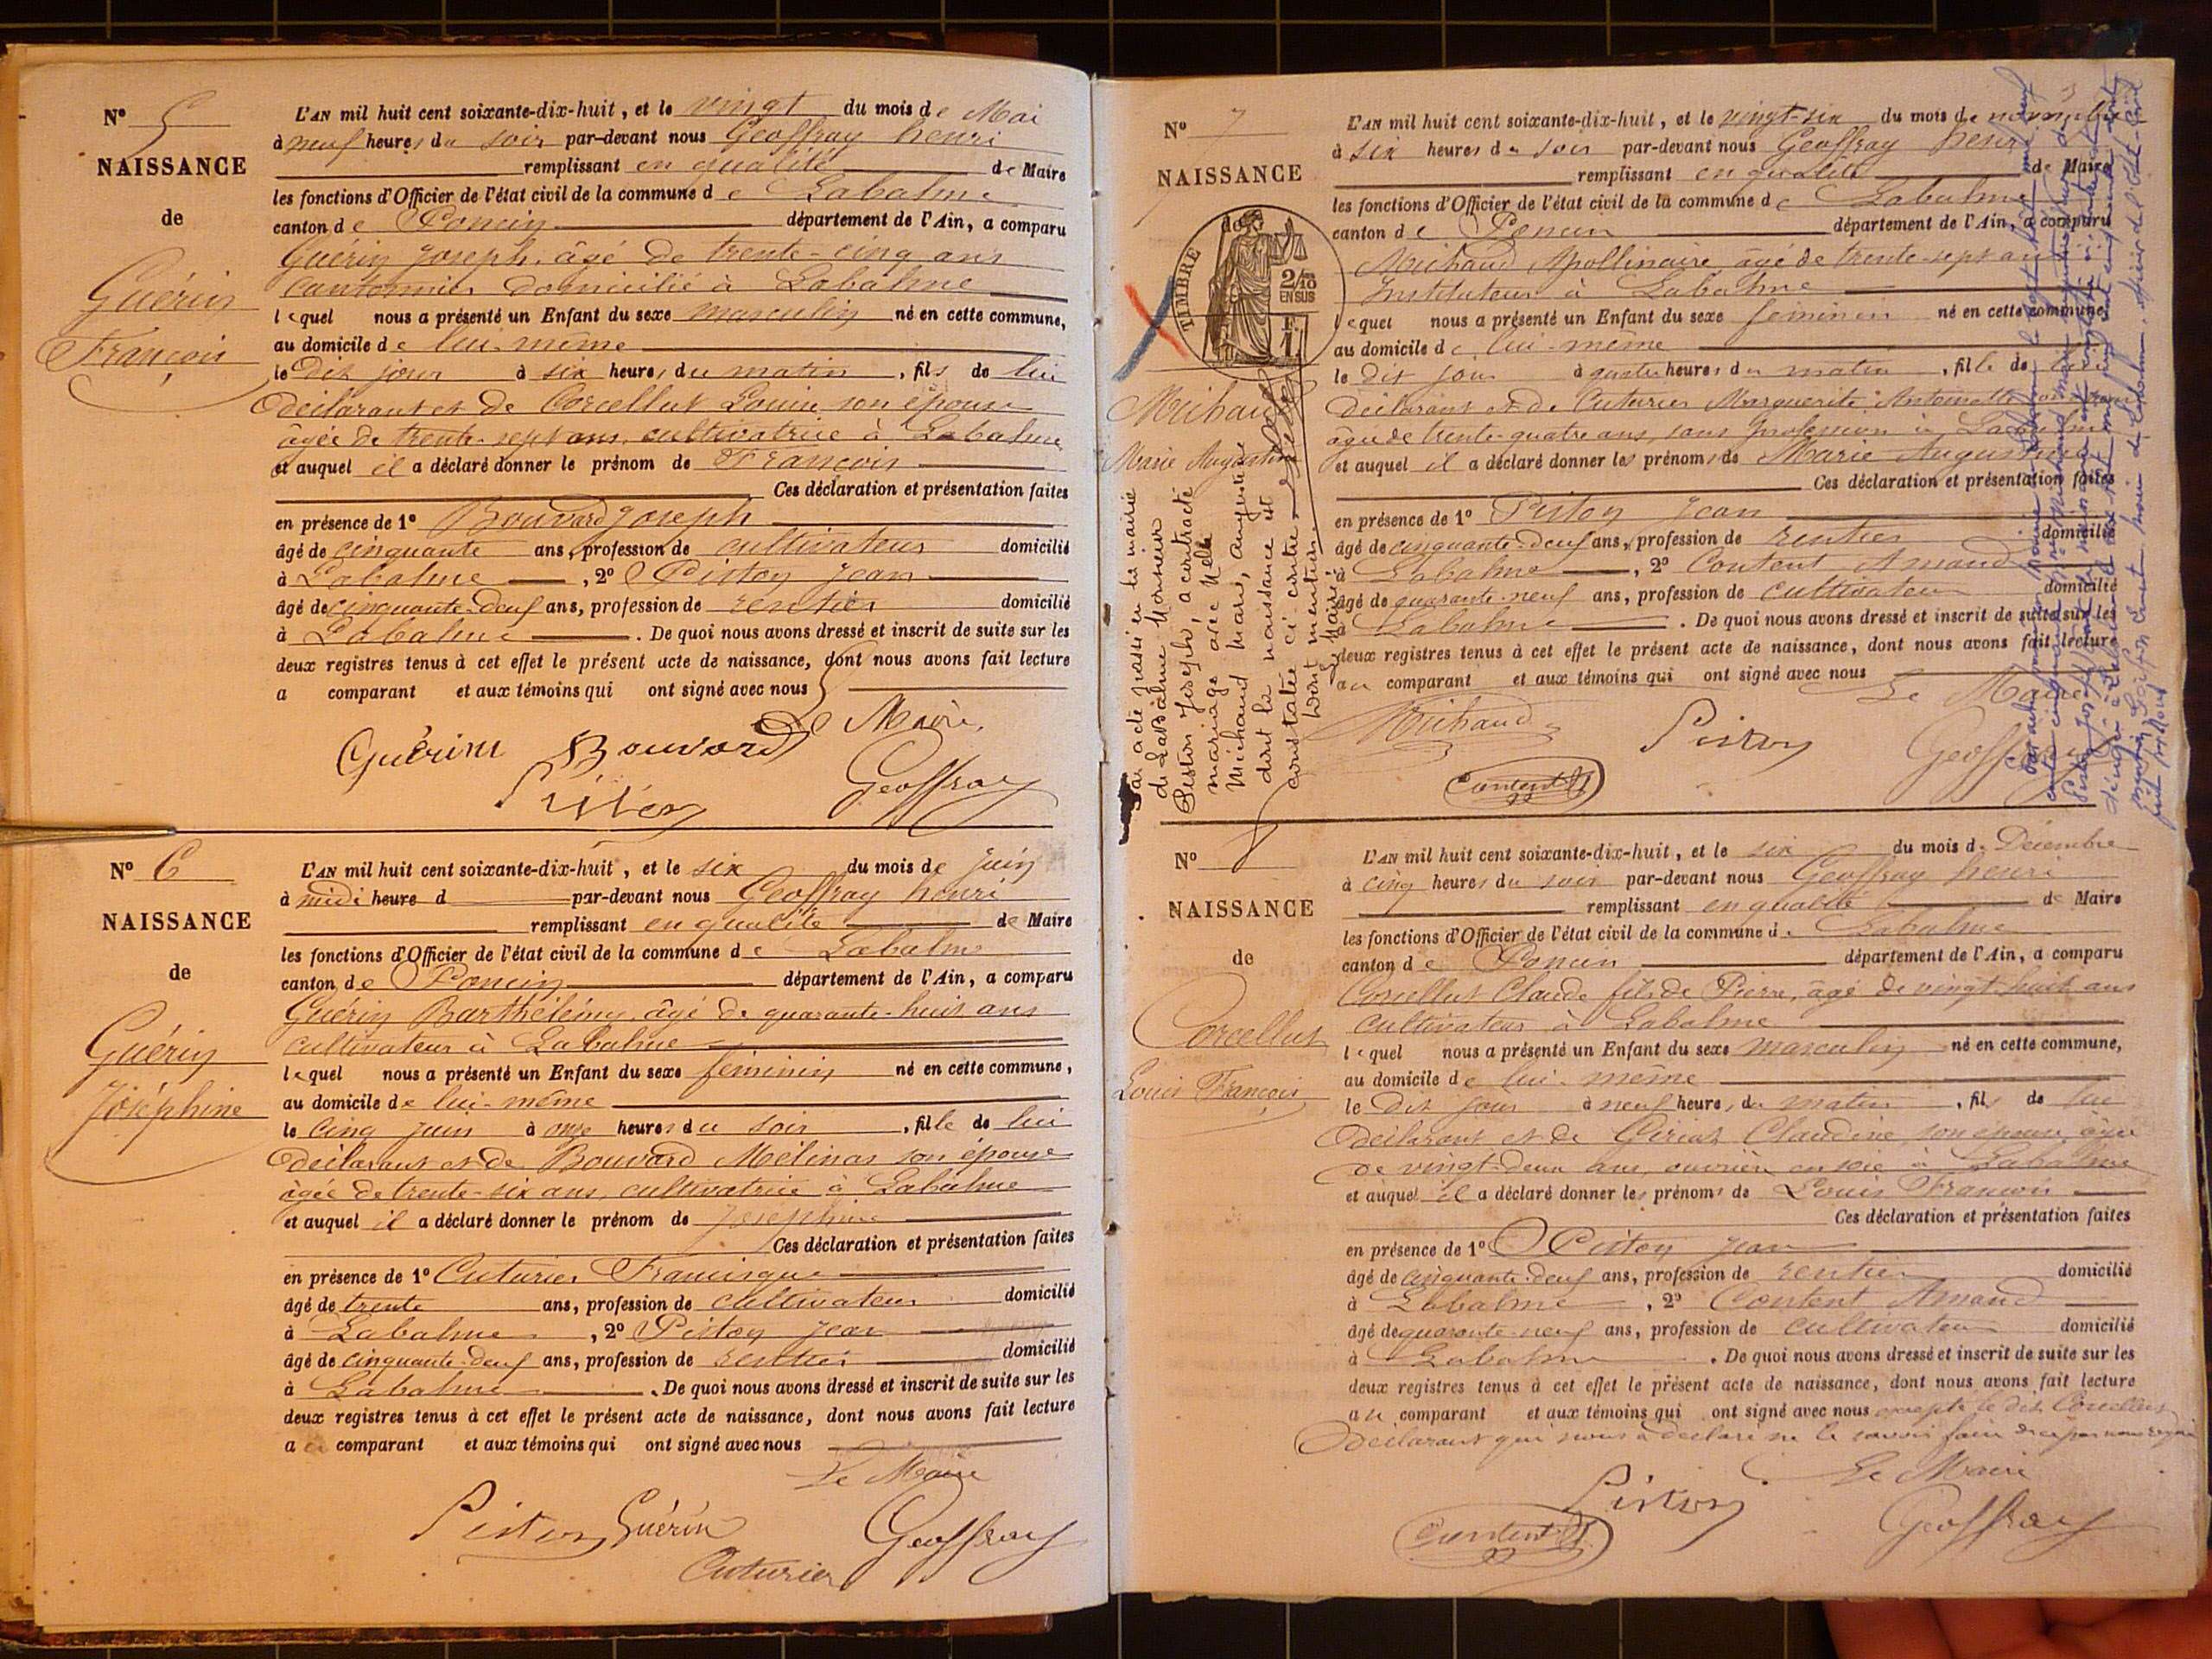 Nº 5
NAISSANCE
de
Guérin
François
L'AN mil huit cent soixante-dix-huit, et le vingt du mois de Mai
à neuf heures du soir par-devant nous Geoffray henri
remplissant en qualité de Maire
les fonctions d'Officier de l'état civil de la commune de Labalme
canton de Poncin département de l'Ain, a comparu
Guérin Joseph, âgé de trente-cinq ans
cantonnier domicilié à Labalme
lequel nous a présenté un Enfant du sexe masculin né en cette commune,
au domicile de lui-même
le dit jour à six heures du matin, fils de lui
déclarant et de Corcellut Louise son épouse
âgée de trente-sept ans, cultivatrice à Labalme
et auquel il a déclaré donner le prénom de François
Ces déclaration et présentation faites
en présence de 1º Bouvard Joseph
âgé de cinquante ans, profession de cultivateur domicilié
à Labalme, 2º Piston Jean
âgé de cinquante-deux ans, profession de rentier domicilié
à Labalme. De quoi nous avons dressé et inscrit de suite sur les
deux registres tenus à cet effet le présent acte de naissance, dont nous avons fait lecture
a comparant et aux témoins qui ont signé avec nous
Le Maire,
Guérin Bouvard
Piston Geoffray
Nº 6
NAISSANCE
de
Guérin
Joséphine
L'AN mil huit cent soixante-dix-huit, et le six du mois de juin
à midi heure d par-devant nous Geoffray henri
remplissant en qualité de Maire
les fonctions d'Officier de l'état civil de la commune de Labalme
canton de Poncin département de l'Ain, a comparu
Guérin Barthélémy, âgé de quarante-huit ans
cultivateur à Labalme
lequel nous a présenté un Enfant du sexe féminin né en cette commune,
au domicile de lui-même
le cinq juin à onze heures du soir, fille de lui
déclarant et de Bouvard Mélinas son épouse
âgée de trente-six ans, cultivatrice à Labalme
et auquel il a déclaré donner le prénom de Joséphine
Ces déclaration et présentation faites
en présence de 1º Cuturier Francisque
âgé de trente ans, profession de cultivateur domicilié
à Labalme, 2º Piston Jean
âgé de cinquante-deux ans, profession de rentier domicilié
à Labalme. De quoi nous avons dressé et inscrit de suite sur les
deux registres tenus à cet effet le présent acte de naissance, dont nous avons fait lecture
au comparant et aux témoins qui ont signé avec nous
Le Maire
Piston Guérin Geoffray
Cuturier
Nº 7
NAISSANCE
de
TIMBRE
2/10
EN SUS
F.
1.
Michaud
Marie Augustine
Par acte passé en la mairie
de LaBalme Monsieur
Piston Joseph, a contracté
mariage avec Melle
Michaud Marie, Augustine
dont la naissance est
constatée ci-contre
Dont mention
Le Maire
L'AN mil huit cent soixante-dix-huit, et le vingt-six du mois de novembre
à six heures du soir par-devant nous Geoffray henri
remplissant en qualité de Maire
les fonctions d'Officier de l'état civil de la commune de Labalme
canton de Poncin département de l'Ain, a comparu
Michaud Apollinaire âgé de trente-sept ans
Instituteur à Labalme
lequel nous a présenté un Enfant du sexe féminin né en cette commune,
au domicile de lui-même
le dit jour à quatre heures du matin, fille de lui
déclarant et de Cuturier Marguerite Antoinette
âgée de trente-quatre ans, sans profession à Labalme
et auquel il a déclaré donner les prénoms de Marie Augustine
Ces déclaration et présentation faites
en présence de 1º Piston Jean
âgé de cinquante-deux ans, profession de rentier domicilié
à Labalme, 2º Content Amand
âgé de quarante-neuf ans, profession de cultivateur domicilié
à Labalme. De quoi nous avons dressé et inscrit de suite sur les
deux registres tenus à cet effet le présent acte de naissance, dont nous avons fait lecture
au comparant et aux témoins qui ont signé avec nous
Le Maire
Michaud Piston Geoffray
Content
Nº 8
NAISSANCE
de
Corcellut
Louis François
L'AN mil huit cent soixante-dix-huit, et le six du mois de Décembre
à cinq heures du soir par-devant nous Geoffray henri
remplissant en qualité de Maire
les fonctions d'Officier de l'état civil de la commune de Labalme
canton de Poncin département de l'Ain, a comparu
Corcellut Claude fils de Pierre, âgé de vingt-huit ans
cultivateur à Labalme
lequel nous a présenté un Enfant du sexe masculin né en cette commune,
au domicile de lui-même
le dit jour à neuf heures du matin, fils de lui
déclarant et de Claudine son épouse, âgée
de vingt-deux ans, ouvrière en soie à Labalme
et auquel il a déclaré donner les prénoms de Louis François
Ces déclaration et présentation faites
en présence de 1º Piston Jean
âgé de cinquante-deux ans, profession de rentier domicilié
à Labalme, 2º Content Amand
âgé de quarante-neuf ans, profession de cultivateur domicilié
à Labalme. De quoi nous avons dressé et inscrit de suite sur les
deux registres tenus à cet effet le présent acte de naissance, dont nous avons fait lecture
au comparant et aux témoins qui ont signé avec nous excepté le dit Corcellut
déclarant qui nous a déclaré ne le savoir faire de ce par nous requis
Le Maire
Piston
Content Geoffray